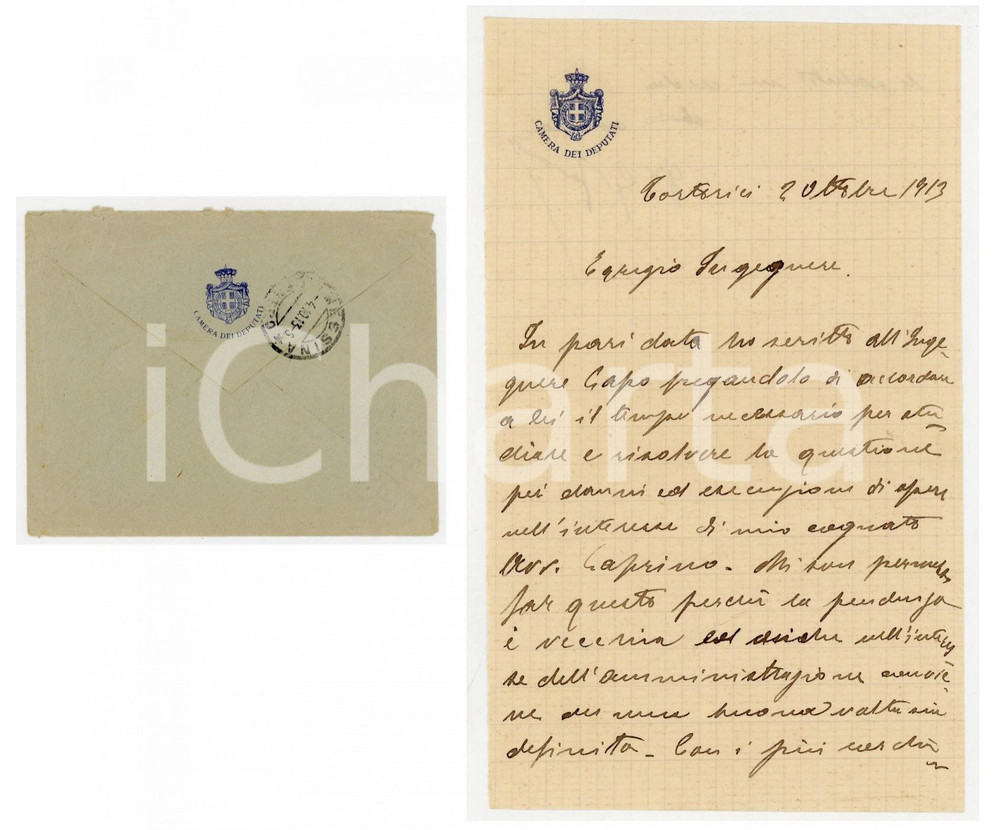 CAMERA DEI DEPUTATI
MESSINA
4.10.13
iCharta
CAMERA DEI DEPUTATI
Tortorici 2 Ottobre 1913
Egregio Ingegnere.
In pari data ho scritto all'Inge-
gnere Capo pregandolo di accordare
a Lei il tempo necessario per stu
diare e risolvere la quistione
pei danni ed esecuzione di opere
nell'interesse di mio cognato
Avv. Caprino. Mi son permesso
far questo perchè la pendenza
è vecchia ed anche nell'interes
se dell'amministrazione convie-
ne che una buona volta sia
definita. Con i più cordia